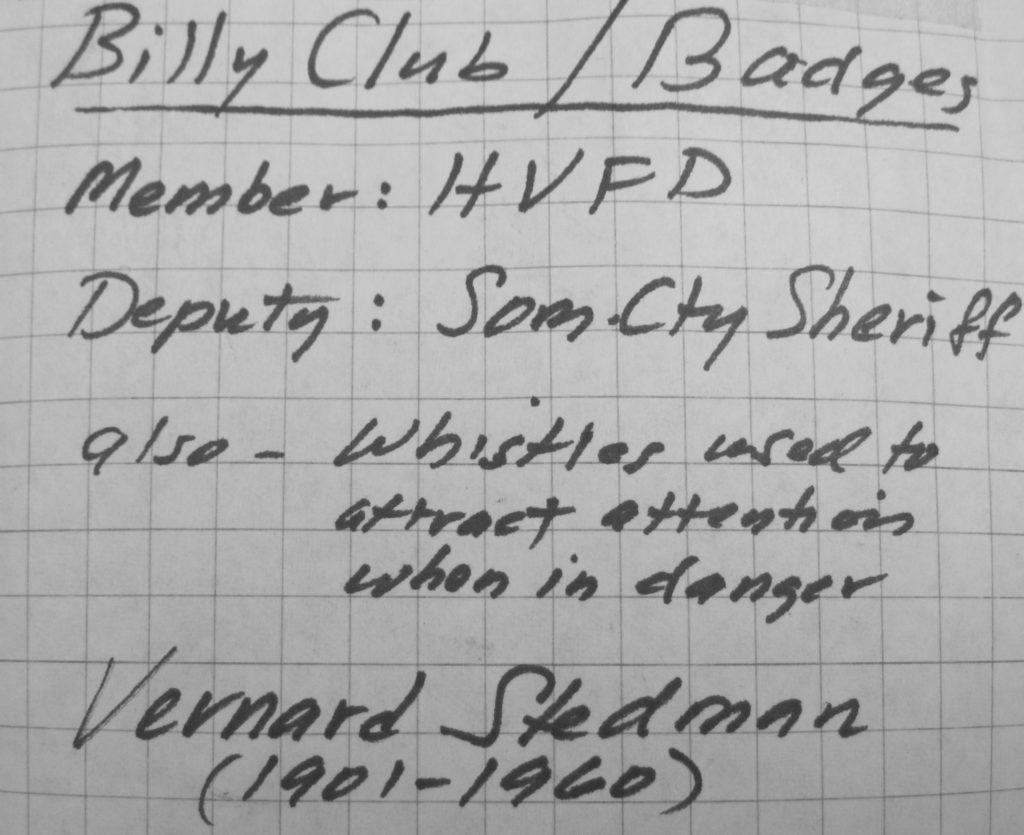 Billy Club / Badges
Member: HVFD
Deputy: Som. Cty Sheriff
also - Whistles used to
attract attention
when in danger
Vernard Stedman
(1901-1960)